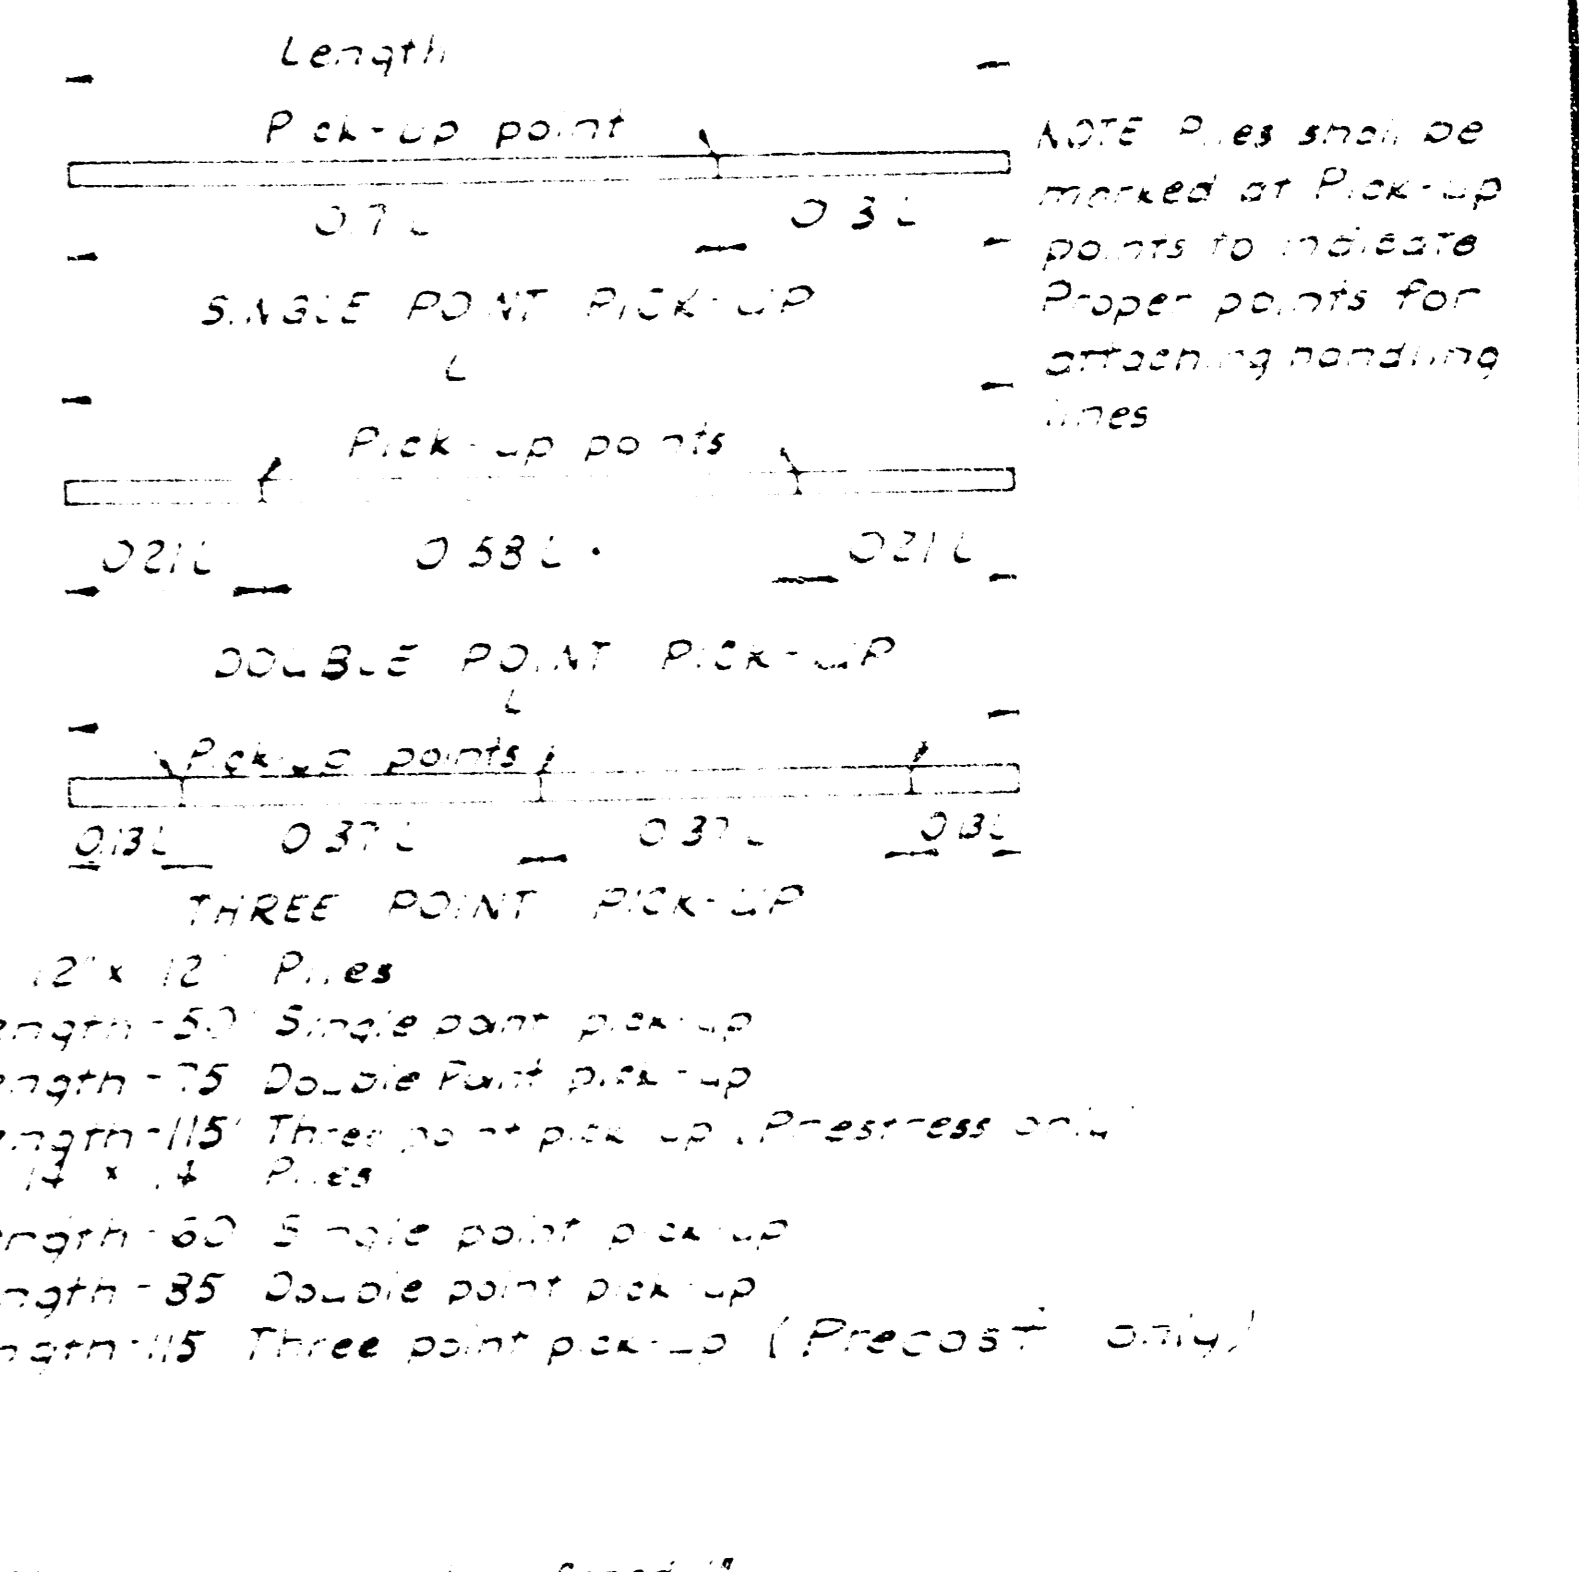 Length
Pick-up point
0.7 L 0.3 L
SINGLE POINT PICK-UP
L
Pick-up points
0.21 L 0.58 L 0.21 L
DOUBLE POINT PICK-UP
L
Pick-up points
0.13 L 0.37 L 0.37 L 0.13 L
THREE POINT PICK-UP
NOTE Piles shall be
marked at Pick-up
points to indicate
Proper points for
attaching handling
lines
12" x 12" Piles
ength-50' Single point pick-up
ength-75 Double Point pick-up
ength-115' Three point pick-up (Prestress only)
14 x 14 Piles
ength-60 Single point pick-up
ngth-85 Double point pick-up
ngth-115 Three point pick-up (Precast only)